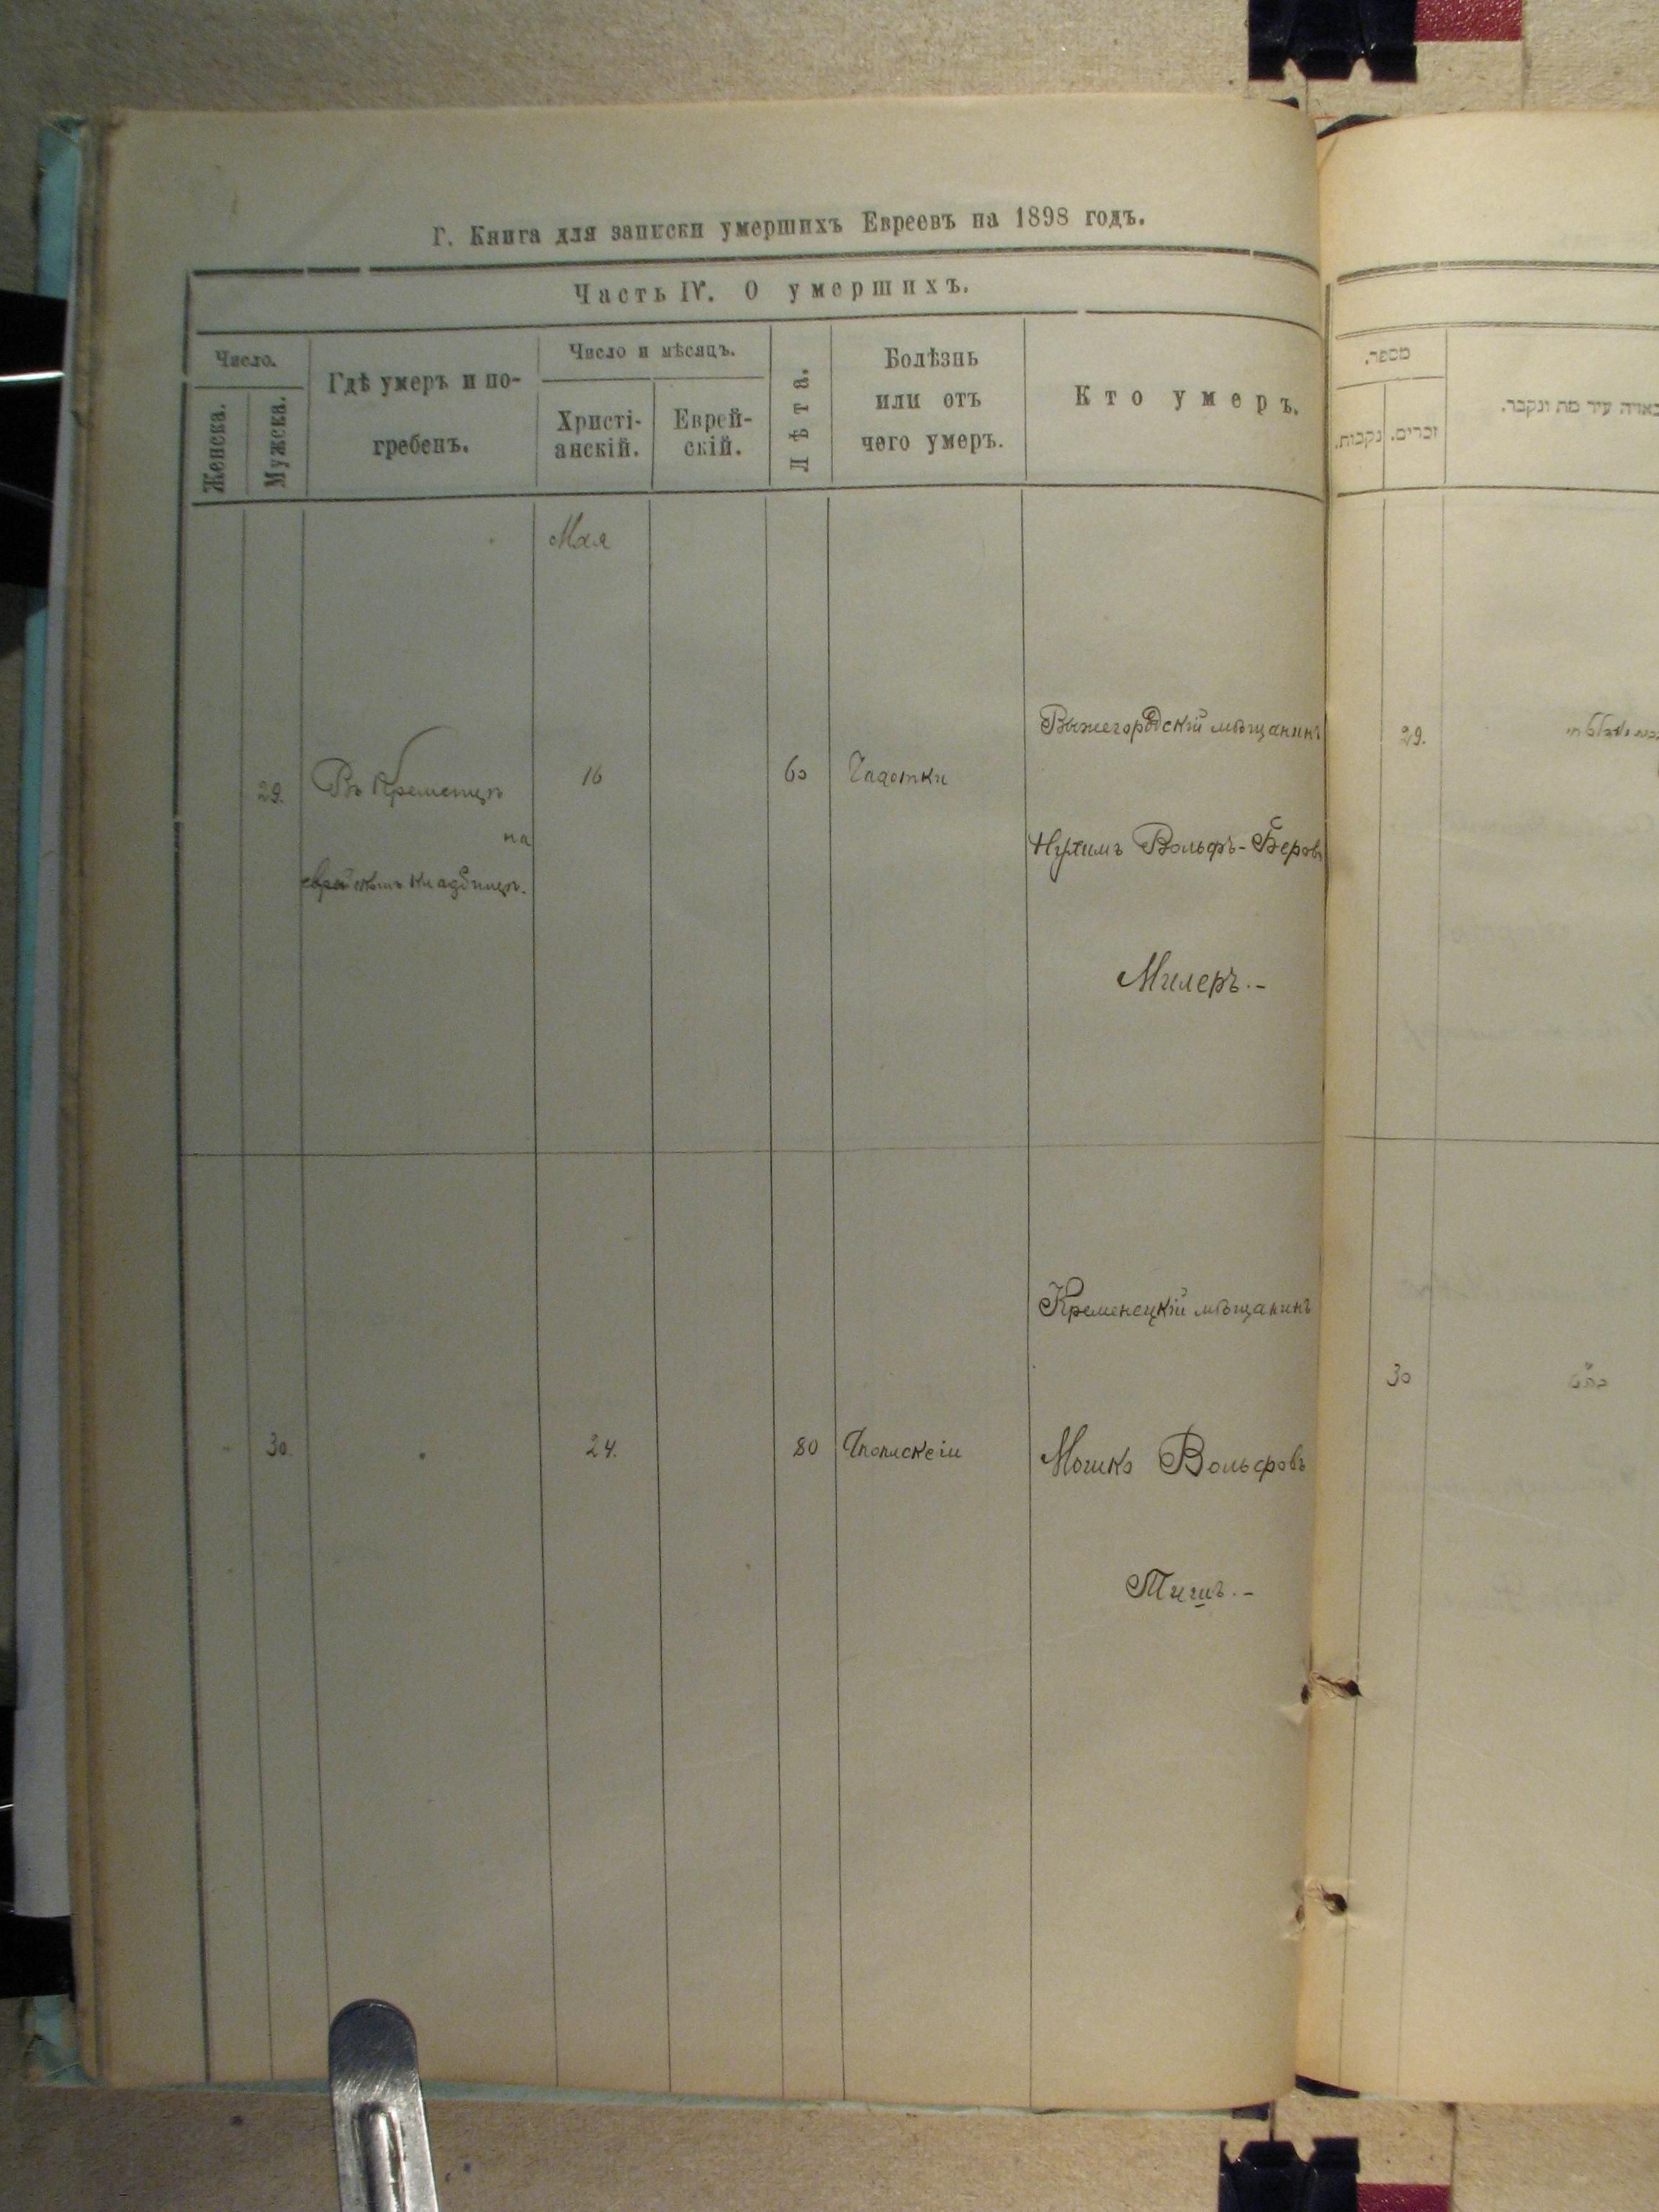 Г. Книга для записки умершихъ Евреевъ на 1898 годъ.
Часть IV. О умершихъ.
Число.
Женска.
Мужска.
Гдѣ умеръ и по-
гребенъ.
Число и мѣсяцъ.
Христі-
анскій.
Еврей-
скій.
Лѣта.
Болѣзнь
или отъ
чего умеръ.
Кто умеръ.
Мая
Вышегородскій мѣщанинъ
29.
Въ Кременцѣ
16
60
Чахотки
на
еврейскомъ кладбищѣ.
Нухимъ Вольфъ-Беровъ
Милеръ.-
Кременецкій мѣщанинъ
30.
24.
80
Мошко Вольфовъ
Тишъ.-
מספר.
נקבות.
זכרים.
באיזה עיר מת ונקבר.
29.
30